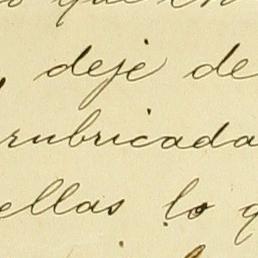 que en
deje de
rubricada
ellas lo q